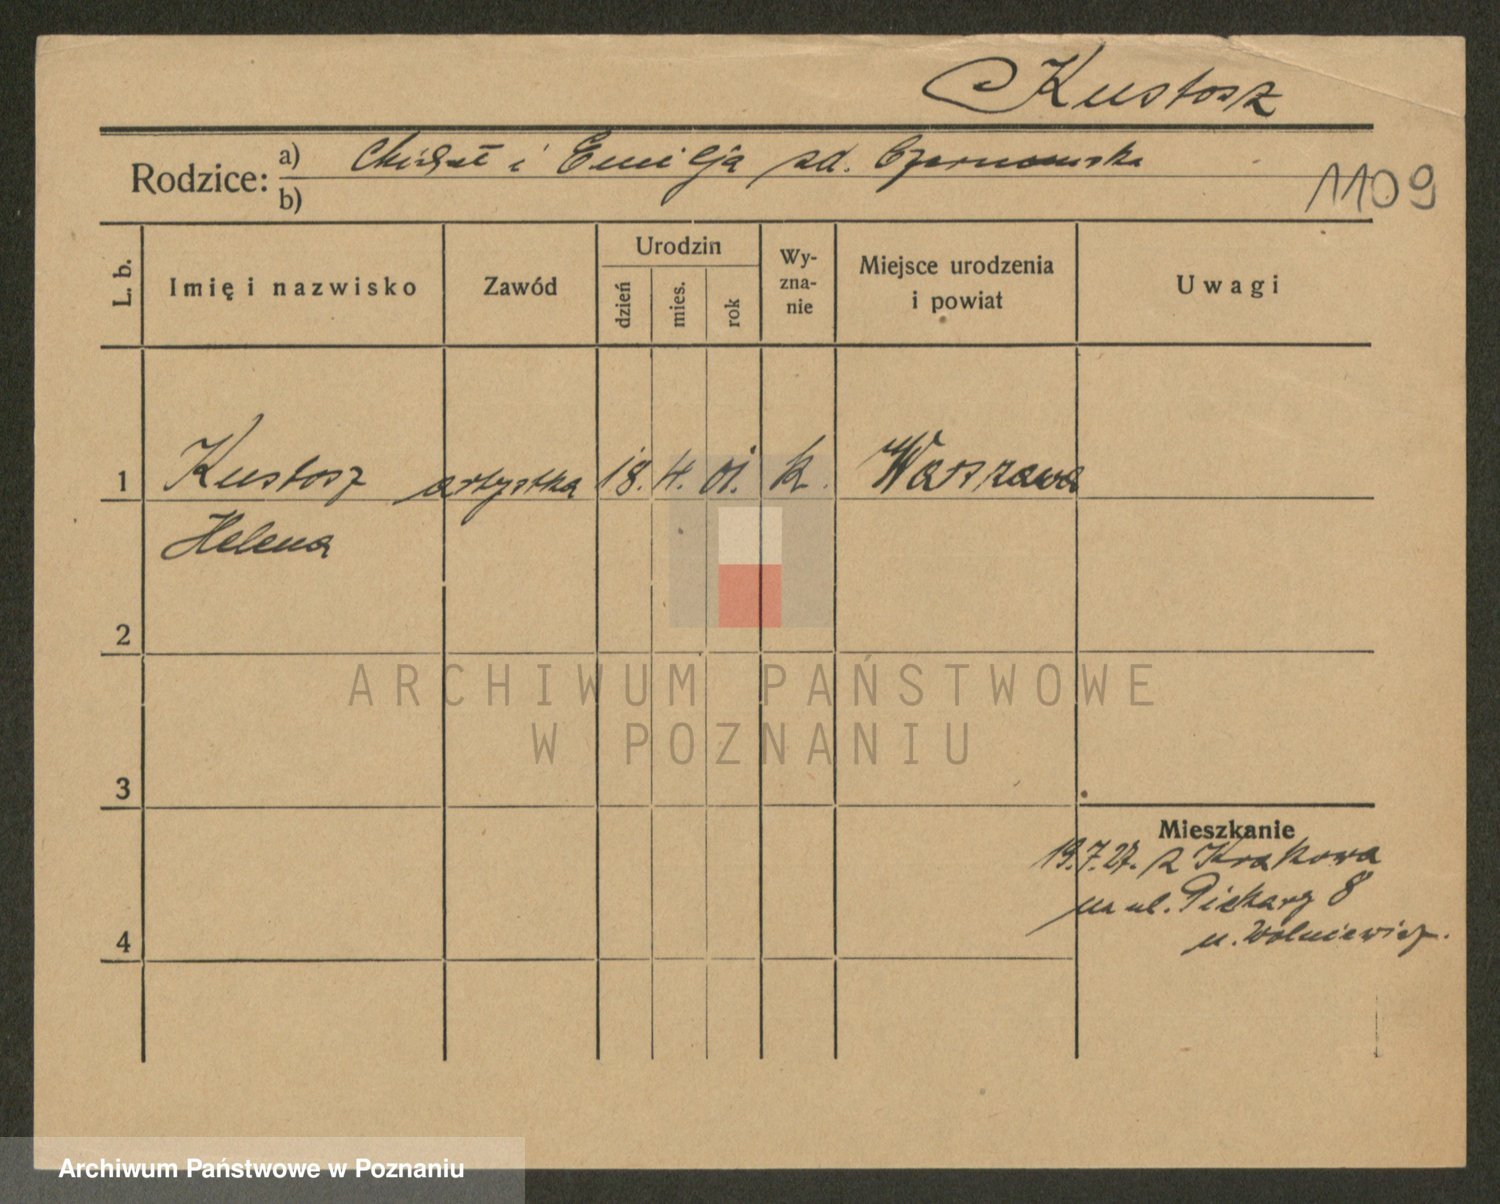 Kustosz
Rodzice: a) Michał i Emilja zd. Czarnomska
b)
1109
L. b.
Imię i nazwisko
Zawód
Urodzin
dzień
mies.
rok
Wy-
zna-
nie
Miejsce urodzenia
i powiat
Uwagi
1 Kustosz artystka 18. 4. 01. k. Warszawa
Helena
2
3
4
Mieszkanie
19.7.27. z Krakowa
na ul. Piekary 8
u. Wolniewicz.
ARCHIWUM PAŃSTWOWE
W POZNANIU
Archiwum Państwowe w Poznaniu